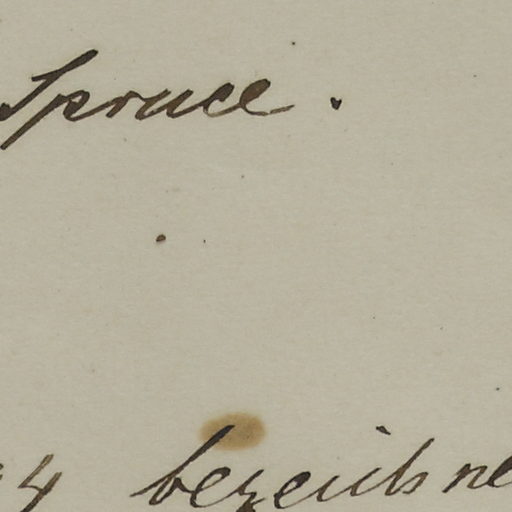 Spruce.
4 bezeichne